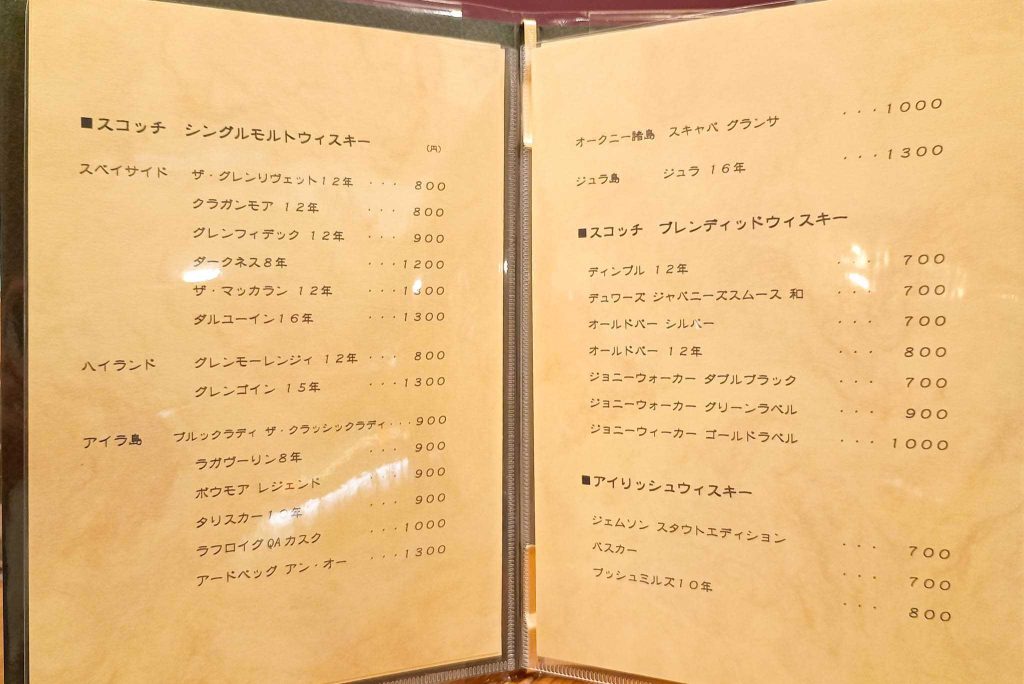 ■スコッチ シングルモルトウィスキー
(円)
スペイサイド ザ・グレンリヴェット12年 ・・・ 800
クラガンモア 12年 ・・・ 800
グレンフィデック 12年 ・・・ 900
ダークネス8年 ・・・ 1200
ザ・マッカラン 12年 ・・・ 1300
ダルユーイン16年 ・・・ 1300
ハイランド グレンモーレンジィ 12年 ・・・ 800
グレンゴイン 15年 ・・・ 1300
アイラ島 ブルックラディ ザ・クラッシックラディ・・・ 900
ラガヴーリン8年 ・・・ 900
ボウモア レジェンド ・・・ 900
タリスカー10年 ・・・ 900
ラフロイグQAカスク ・・・ 1000
アードベッグ アン・オー ・・・ 1300
オークニー諸島 スキャパ グランサ ・・・ 1000
ジュラ島 ジュラ 16年 ・・・ 1300
■スコッチ ブレンディッドウィスキー
ディンプル 12年 ・・・ 700
デュワーズ ジャパニーズスムース 和 ・・・ 700
オールドパー シルバー ・・・ 700
オールドパー 12年 ・・・ 800
ジョニーウォーカー ダブルブラック ・・・ 700
ジョニーウォーカー グリーンラベル ・・・ 900
ジョニーウィーカー ゴールドラベル ・・・ 1000
■アイリッシュウィスキー
ジェムソン スタウトエディション ・・・ 700
バスカー ・・・ 700
ブッシュミルズ10年 ・・・ 800